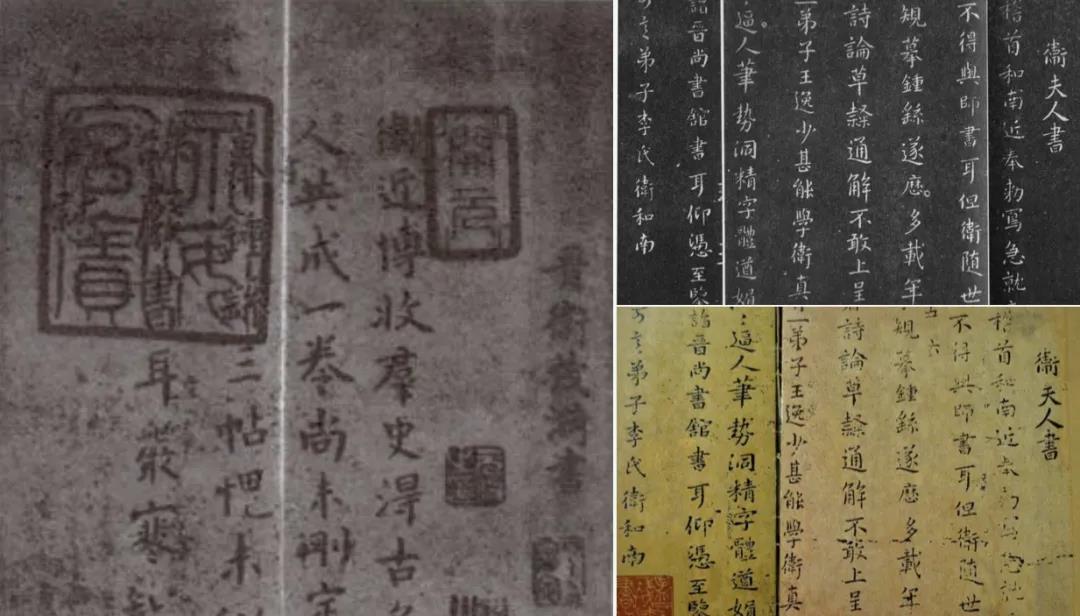 晉衛茂漪書
衛近博收群史得古名
人共成一卷尚未刪定
三帖
書耳嚴寒
開元
衛夫人書
稽首和南近奉勅寫急就
不得與師書耳但衛隨世
規摹鍾繇遂歷多載年
詩論草隸通解不敢上呈
一弟子王逸少甚能學衛真
逼人筆勢洞精字體遒媚
詣晉尚書館書耳仰憑至鑒
弟子李氏衛和南
衛夫人書
稽首和南近奉
不得與師書耳但衛隨世
規摹鍾繇遂歷多載年
詩論草隸通解不敢上呈
一弟子王逸少甚能學衛真
逼人筆勢洞精字體遒媚
詣晉尚書館書耳仰憑至鑒
弟子李氏衛和南